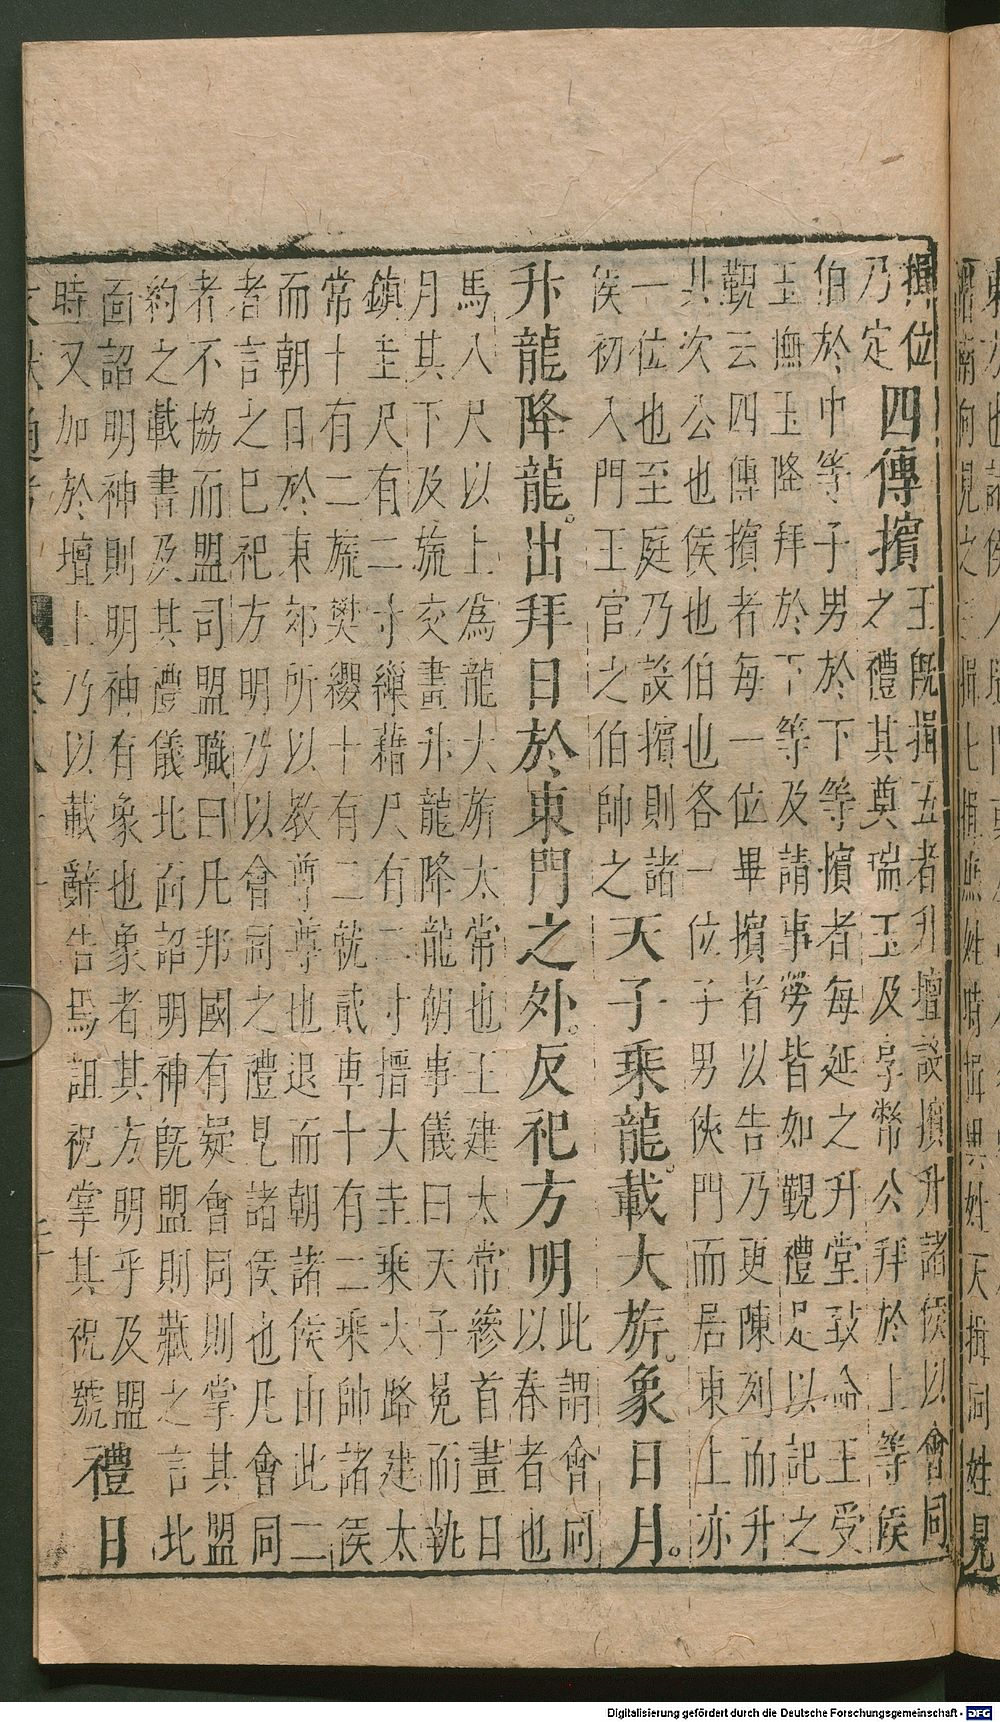 揖位
乃定
四傳擯
王既揖五者升壇設擯升諸侯以會同
之禮其奠瑞玉及享幣公拜於上等侯
伯於中等子男於下等擯者每延之升堂致命王受
玉撫玉降拜於下等及請事勞皆如覲禮是以記之
覲云四傳擯者每一位畢擯者以告乃更陳列而升
其次公也侯也伯也各一位子男俠門而居東上亦
一位也至庭乃設擯則諸
侯初入門王官之伯帥之
天子乘龍載大旂。象日月。
升龍降龍。出拜日於東門之外。反祀方明
此謂會同
以春者也
馬八尺以上爲龍大旂太常也王建太常縿首畫日
月其下及旒交畫升龍降龍朝事儀曰天子冕而執
鎮圭尺有二寸繅藉尺有二寸搢大圭乘大路建太
常十有二旒樊纓十有二就貳車十有二乘帥諸侯
而朝日於東郊所以教尊尊也退而朝諸侯由此二
者言之已祀方明乃以會同之禮見諸侯也凡會同
者不協而盟司盟職曰凡邦國有疑會同則掌其盟
約之載書及其禮儀北面詔明神既盟則藏之言北
面詔明神則明神有象也象者其方明乎及盟
時又加於壇上乃以載辭告焉詛祝掌其祝號
禮日
Digitalisierung gefördert durch die Deutsche Forschungsgemeinschaft - DFG